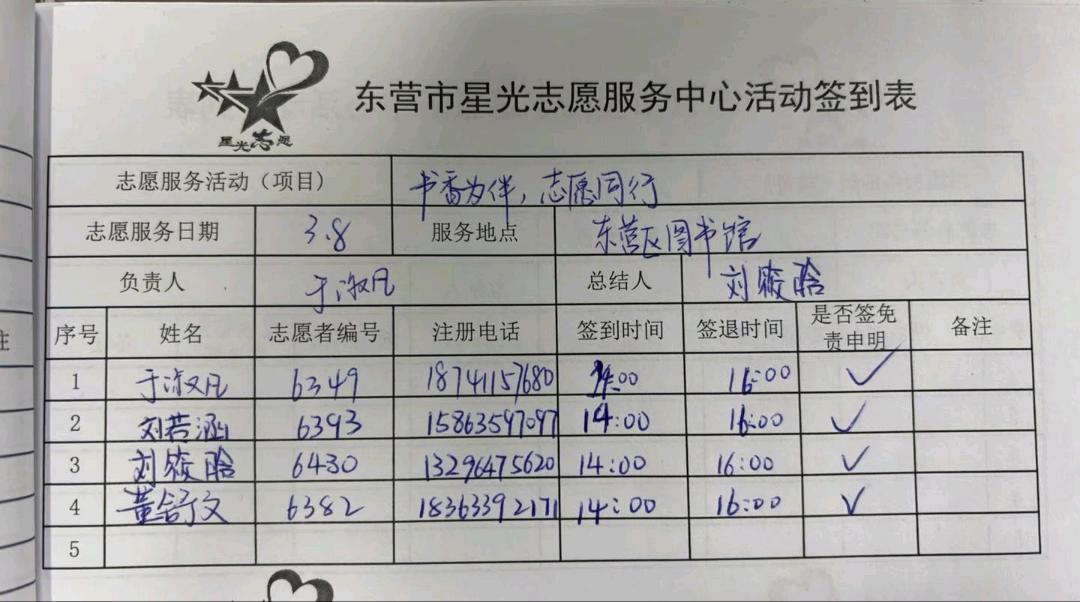 星光志愿
东营市星光志愿服务中心活动签到表
志愿服务活动（项目） 书香为伴，志愿同行
志愿服务日期 3.8 服务地点 东营区图书馆
负责人 于淑凡 总结人 刘筱晗
序号 姓名 志愿者编号 注册电话 签到时间 签退时间 是否签免责申明 备注
1 于淑凡 6349 18741157680 14:00 16:00 ✓
2 刘若涵 6393 15863597097 14:00 16:00 ✓
3 刘筱晗 6430 13296475620 14:00 16:00 ✓
4 董舒文 6382 18363392171 14:00 16:00 ✓
5
注